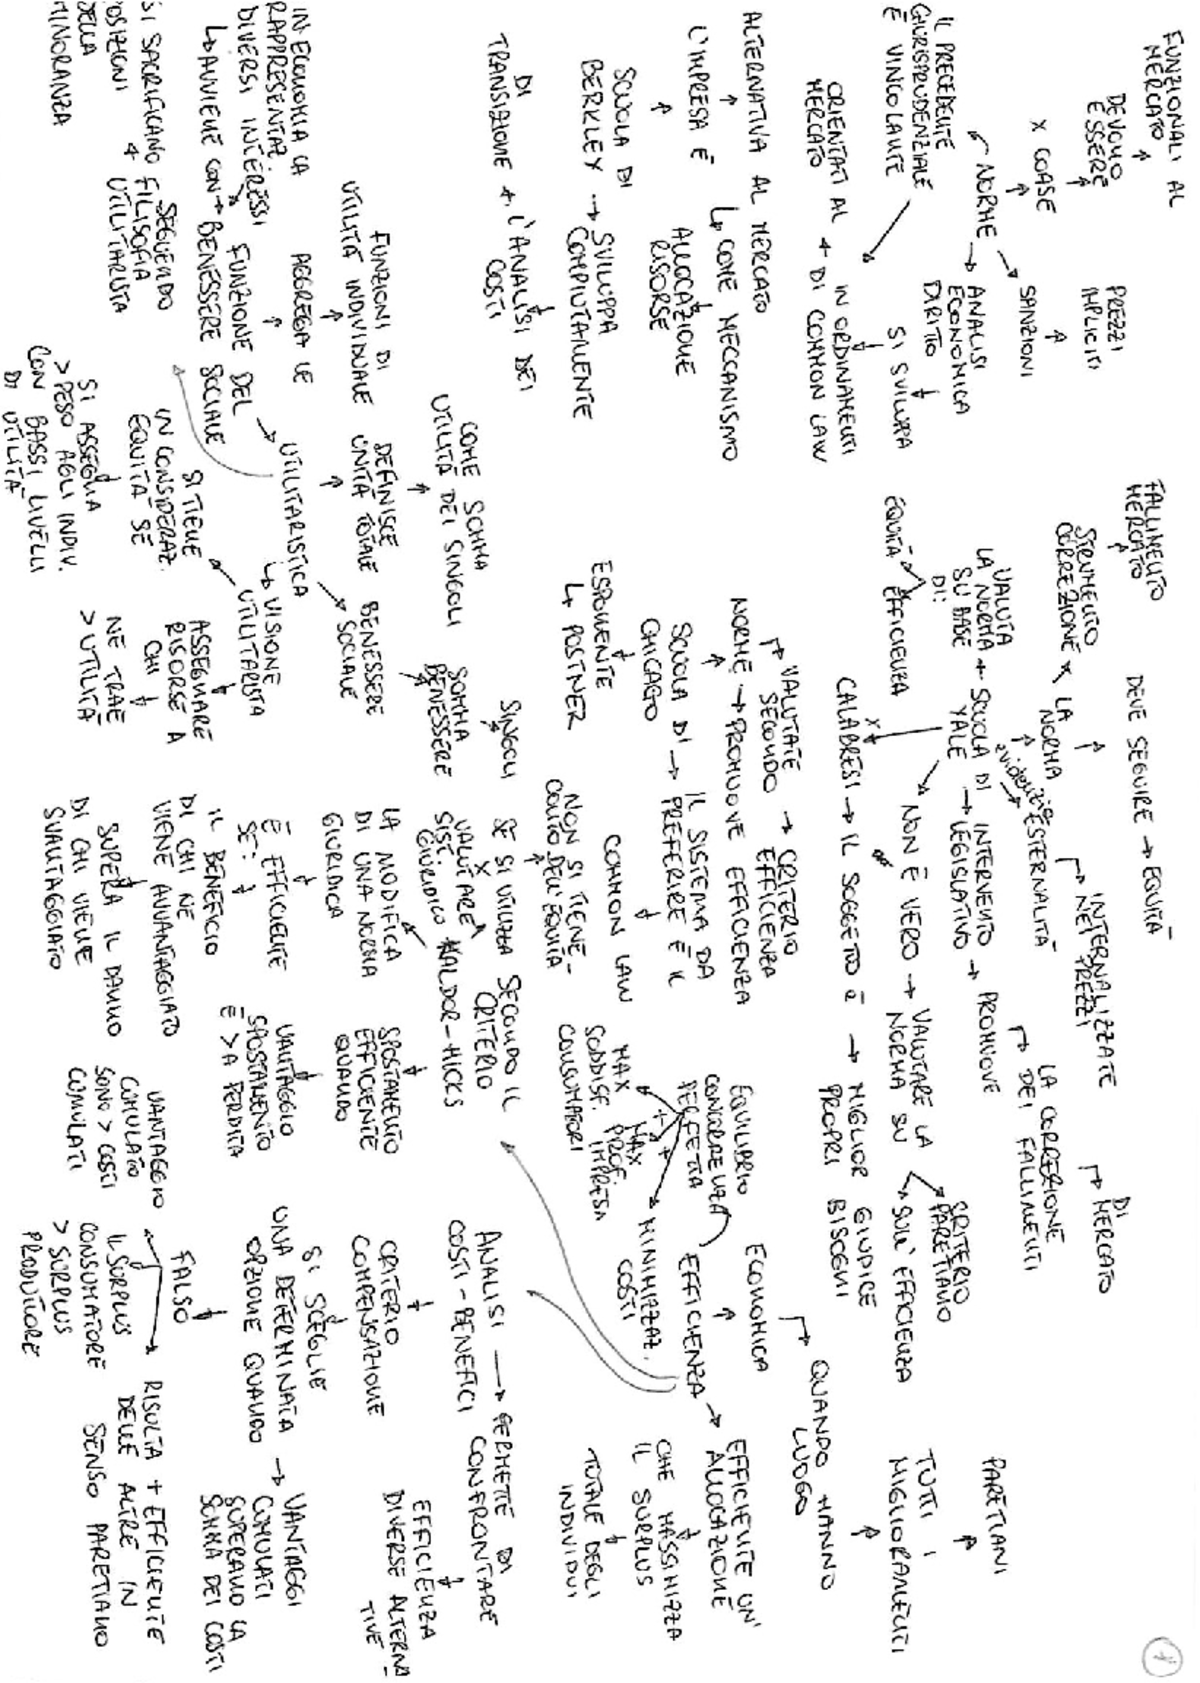 FUNZIONALI AL
MERCATO
DEVONO
ESSERE
X COASE
NORME → SANZIONI
PREZZI
IMPLICITI
→ ANALISI
ECONOMICA
DIRITTO
IL PRECEDENTE
GIURISPRUDENZIALE
È VINCOLANTE
SI SVILUPPA
ORIENTATI AL + DI COMMON LAW
MERCATO
IN ORDINAMENTI
ALTERNATIVA AL MERCATO
L'IMPRESA È
↳ COME MECCANISMO
ALLOCAZIONE
RISORSE
SCUOLA DI
BERKLEY → SVILUPPA
COMPIUTAMENTE
L'ANALISI DEI
COSTI
DI
TRANSIZIONE
FALLIMENTO
MERCATO
STRUMENTO
CORREZIONE X LA
NORMA
DEVE SEGUIRE → EQUITÀ
VALUTA
LA NORMA
SU BASE
DI:
EQUITÀ
EFFICIENZA
SCUOLA DI
YALE
evidenzia
ESTERNALITÀ
INTERNALIZZATE
NEI PREZZI
→ INTERVENTO
LEGISLATIVO
→ PROMUOVE
LA CORREZIONE
DEI FALLIMENTI
DI
MERCATO
NON È VERO → VALUTARE LA
NORMA SU
CRITERIO
PARETIANO
SULL'EFFICIENZA
X
CALABRESI → IL SOGGETTO È → MIGLIOR GIUDICE
PROPRI BISOGNI
PARETIANI
TUTTI I
MIGLIORAMENTI
QUANDO HANNO
LUOGO
VALUTATE
SECONDO → CRITERIO
EFFICIENZA
NORME → PROMUOVE EFFICIENZA
SCUOLA DI → IL SISTEMA DA
CHICAGO
PREFERIRE È IL
COMMON LAW
ESPONENTE
↳ POSTNER
NON SI TIENE
CONTO DELL'EQUITÀ
ECONOMICA
EFFICIENZA
EQUILIBRIO
CONCORRENZA
PERFETTA
MAX
SODDISF.
CONSUMATORI
MAX
PROF.
IMPRESA
MINIMIZZAZ.
COSTI
EFFICIENTE UN'
ALLOCAZIONE
CHE MASSIMIZZA
IL SURPLUS
TOTALE DEGLI
INDIVIDUI
IN ECONOMIA LA
RAPPRESENTAZ.
DIVERSI INTERESSI
↳ AVVIENE CON → BENESSERE SOCIALE
FUNZIONE DEL
AGGREGA LE
FUNZIONI DI
UTILITÀ INDIVIDUALE
SI SACRIFICANO
POSIZIONI
DELLA
MINORANZA
SEGUENDO
FILISOFIA
UTILITARISTA
UTILITARISTICA
DEFINISCE
UNITÀ TOTALE
COME SOMMA
UTILITÀ DEI SINGOLI
BENESSERE
SOCIALE
SOMMA
BENESSERE
SINGOLI
↳ VISIONE
UTILITARISTA
SI TIENE
IN CONSIDERAZ.
EQUITÀ SE
SI ASSEGNA
> PESO AGLI INDIV.
CON BASSI LIVELLI
DI UTILITÀ
ASSEGNARE
RISORSE A
CHI
NE TRAE
> UTILITÀ
SE SI UTILIZZA
X
VALUTARE
SIST.
GIURIDICO
SECONDO IL
CRITERIO
KALDOR-HICKS
LA MODIFICA
DI UNA NORMA
GIURIDICA
È EFFICIENTE
SE:
IL BENEFICIO
DI CHI NE
VIENE AVVANTAGGIATO
SUPERA IL DANNO
DI CHI VIENE
SVANTAGGIATO
SPOSTAMENTO
EFFICIENTE
QUANDO
VANTAGGIO
SPOSTAMENTO
È > A PERDITA
ANALISI → PERMETTE DI
COSTI-BENEFICI
CONFRONTARE
EFFICIENZA
DIVERSE ALTERNA
TIVE
CRITERIO
COMPENSAZIONE
SI SCEGLIE
UNA DETERMINATA
OPZIONE QUANDO → VANTAGGI
CUMULATI
SUPERANO LA
SOMMA DEI COSTI
FALSO
VANTAGGIO
CUMULATO
SONO > COSTI
CUMULATI
IL SURPLUS
CONSUMATORE
> SURPLUS
PRODUTTORE
RISULTA + EFFICIENTE
DELLE ALTRE IN
SENSO PARETIANO
1